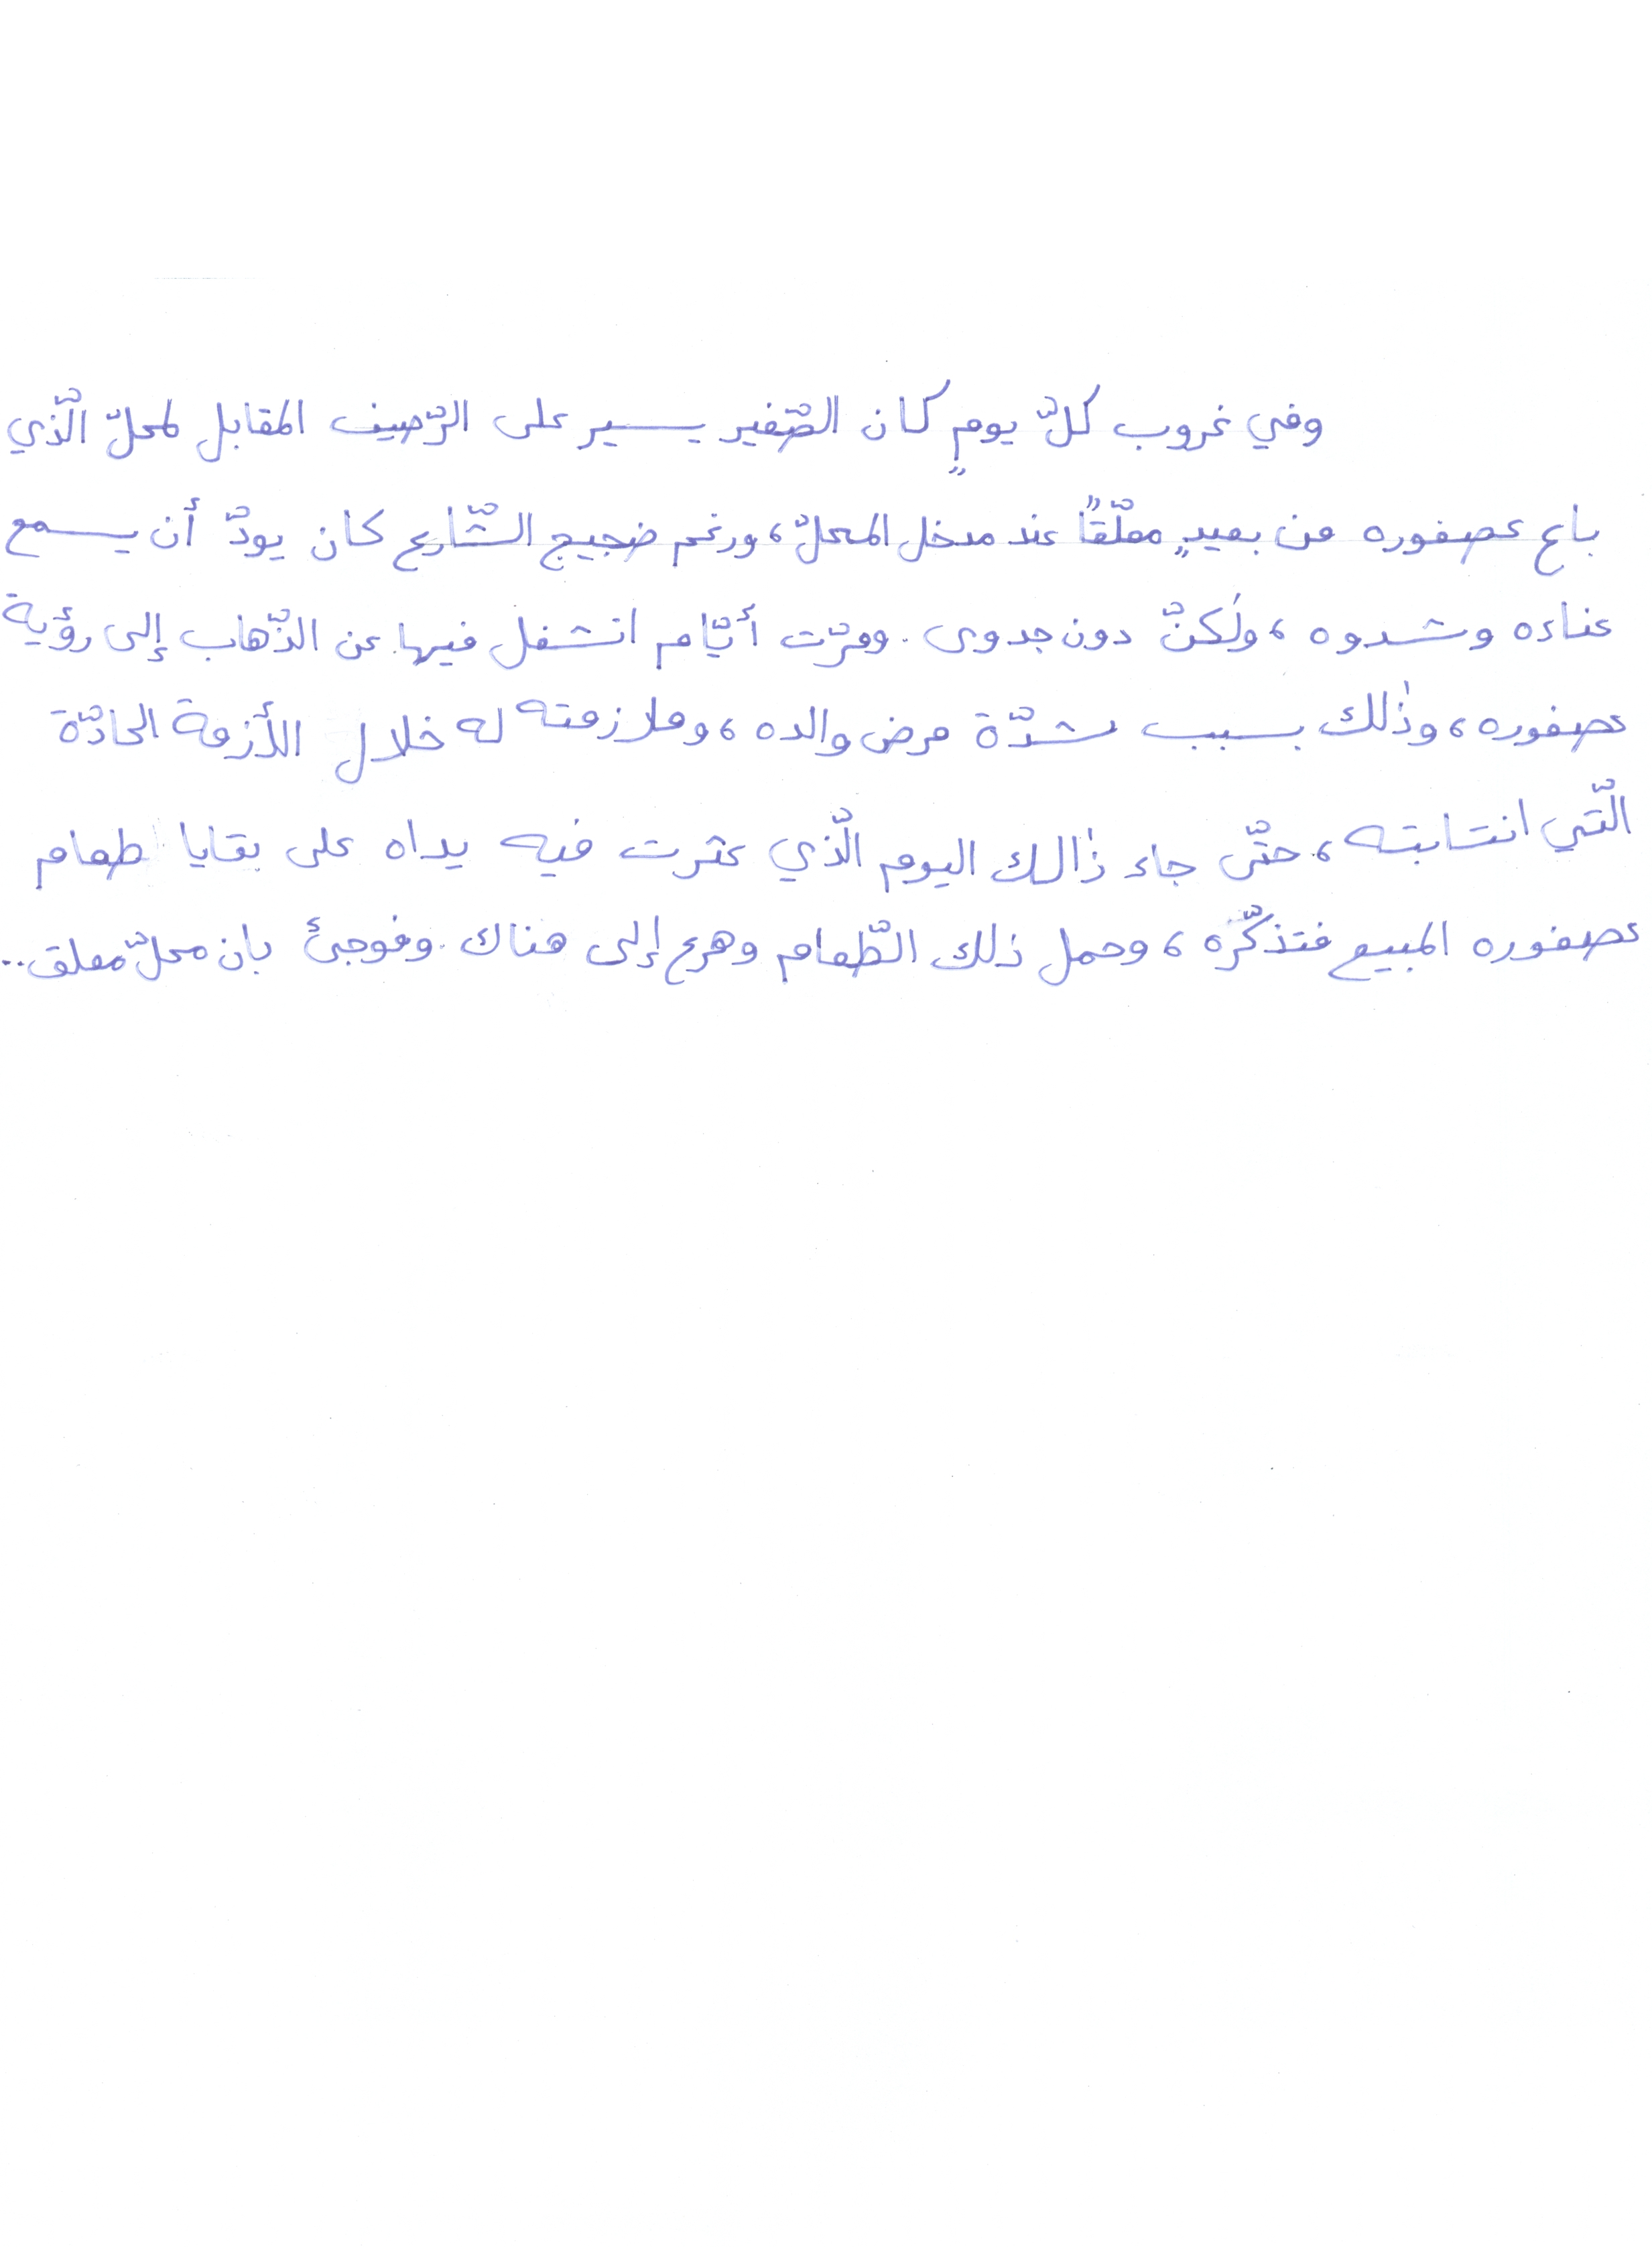 وفي غروب كلّ يومٍ كان الصّغير يسير على الرّصيف المقابل لمحلّ الّذي
باع عصفوره من بعيدٍ معلّقًا عند مدخل المحلّ، ورغم ضجيج الشّارع كان يودّ أن يسمع
غناءه وشدوه، ولٰكنّ دون جدوى. ومرّت أيّام انشغل فيها عن الذّهاب إلى رؤية
عصفوره، وذٰلك بسبب شدّة مرض والده، وملازمته له خلال اللأزمة الحادّة
الّتي انتابته، حتّى جاء ذٰالك اليوم الّذي عثرت فيه يداه على بقايا طعام
عصفوره المبيع فتذكّره، وحمل ذلك الطّعام وهرع إلى هناك. وفوجئ بان محلّ مغلق..